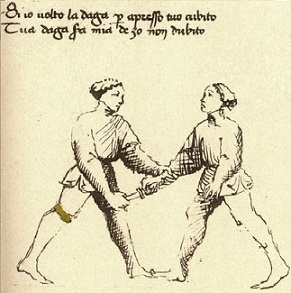 Si io volto la daga p apresso tuo cubito
Tua daga sia mia de zo non dubito